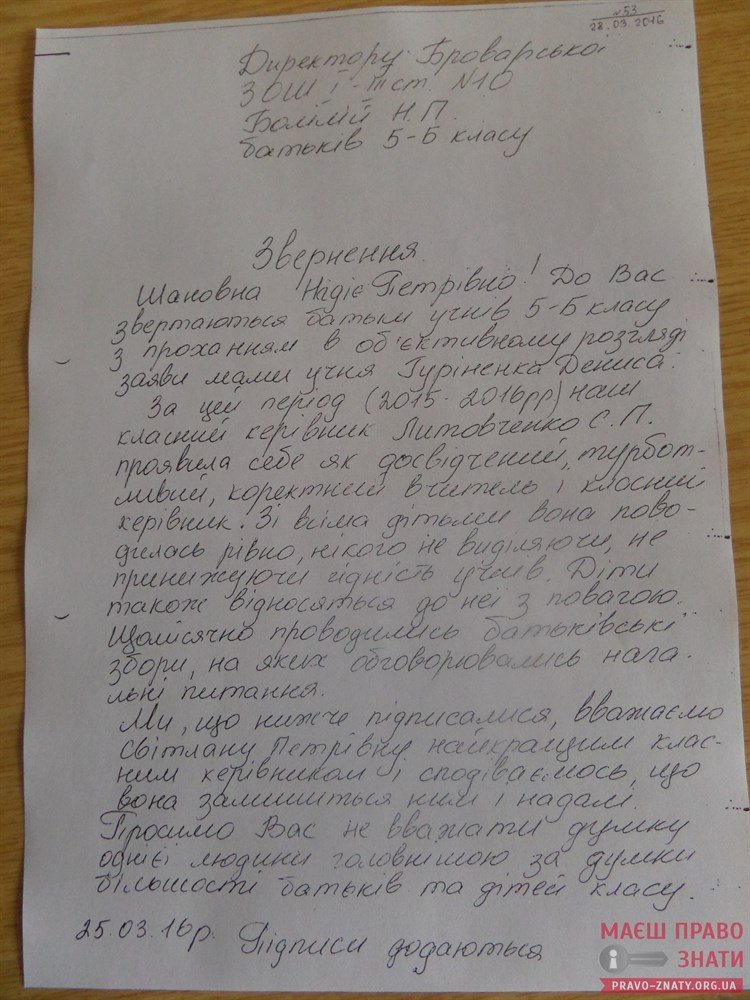 №53
28.03.2016
Директору Броварської
ЗОШ І-ІІІ ст. №10
Болілій Н.П.
батьків 5-Б класу
Звернення
Шановна Надіє Петрівно! До Вас
звертаються батьки учнів 5-Б класу
з проханням в об'єктивному розгляді
заяви мами учня Гуріненка Дениса.
За цей період (2015-2016рр) наш
класний керівник Литовченко С.П.
проявила себе як досвідчений, турбот-
ливий, коректний вчитель і класний
керівник. Зі всіма дітьми вона пово-
дилась рівно, нікого не виділяючи, не
принижуючи гідність учнів. Діти
також відносяться до неї з повагою.
Щомісячно проводились батьківські
збори, на яких обговорювались нага-
льні питання.
Ми, що нижче підписалися, вважаємо
Світлану Петрівну найкращим клас-
ним керівником і сподіваємось, що
вона залишиться ним і надалі.
Просимо Вас не вважати думку
однієї людини головнішою за думки
більшості батьків та дітей класу.
25.03.16р. Підписи додаються
МАЄШ ПРАВО
ЗНАТИ
PRAVO-ZNATY.ORG.UA